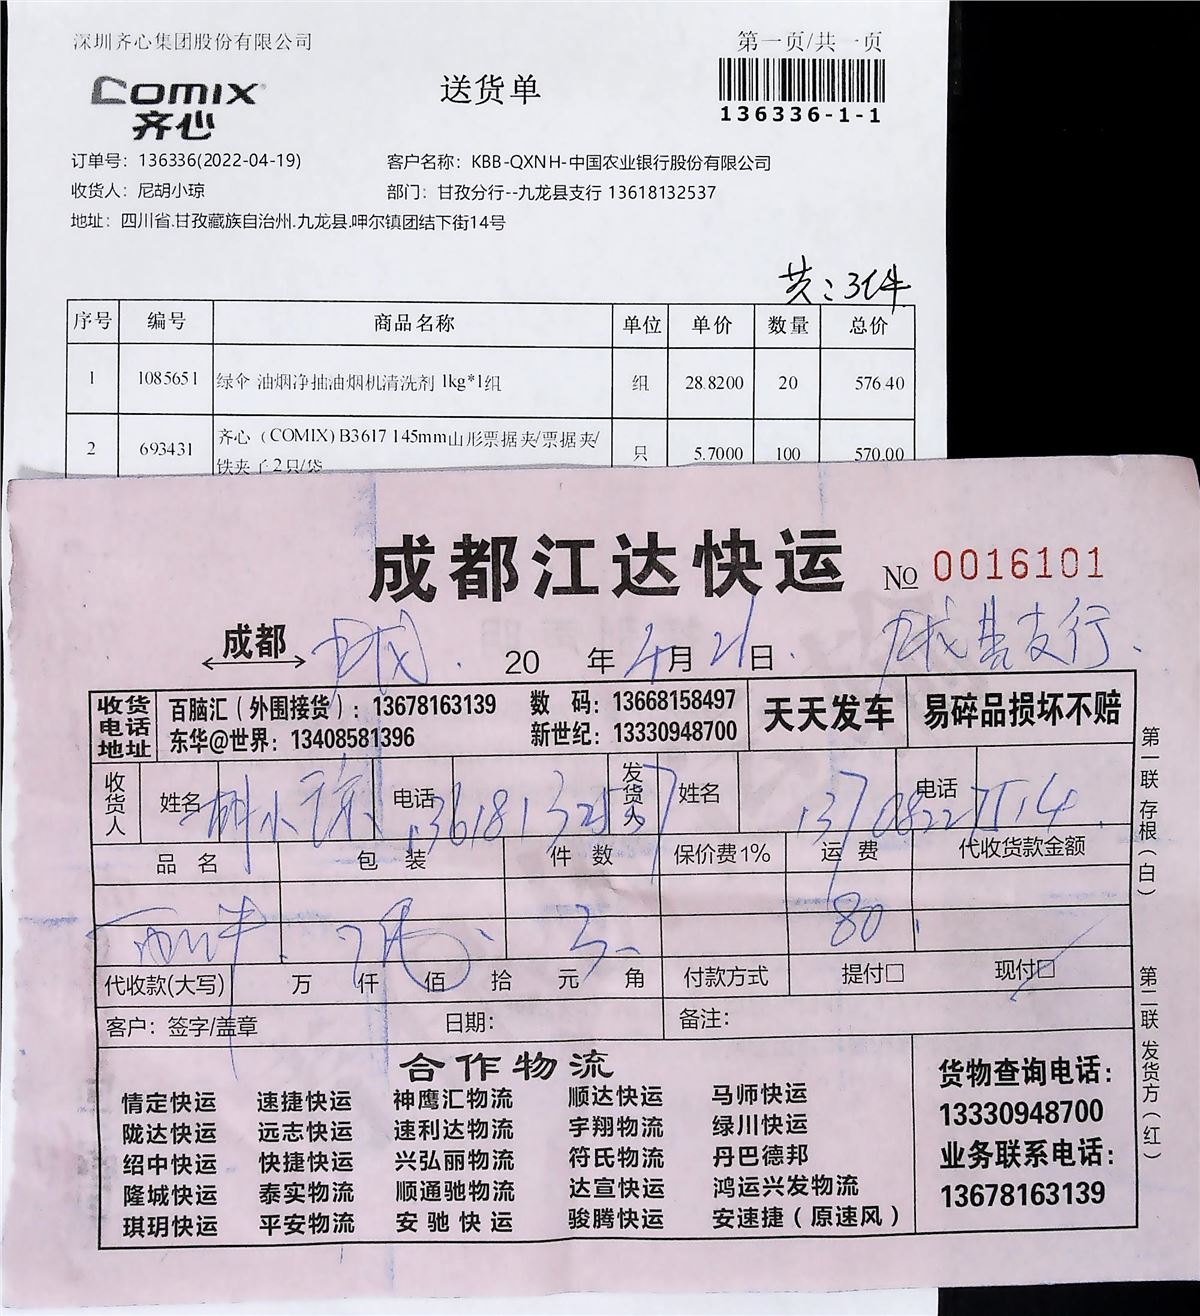 深圳齐心集团股份有限公司
第一页/共一页
COMIX
齐心
送货单
136336-1-1
订单号：136336(2022-04-19)
客户名称：KBB-QXNH-中国农业银行股份有限公司
收货人：尼胡小琼
部门：甘孜分行--九龙县支行 13618132537
地址：四川省.甘孜藏族自治州.九龙县.呷尔镇团结下街14号
共：3件
序号 编号 商品名称 单位 单价 数量 总价
1 1085651 绿伞 油烟净抽油烟机清洗剂 1kg*1组 组 28.8200 20 576.40
2 693431 齐心（COMIX）B3617 145mm山形票据夹/票据夹/ 只 5.7000 100 570.00
铁夹子 2只/袋
成都江达快运
No 0016101
成都 九龙 20 年 4月 21日 九龙县支行
收货电话地址
百脑汇（外围接货）：13678163139 数 码：13668158497
东华@世界：13408581396 新世纪：13330948700
天天发车
易碎品损坏不赔
收货人 姓名 胡小琼 电话 13618132537 发货人 姓名 电话 13708227514
品 名 包 装 件 数 保价费1% 运 费 代收货款金额
80
代收款(大写) 万 仟 佰 拾 元 角 付款方式 提付□ 现付□
客户：签字/盖章 日期： 备注：
合作物流
情定快运 速捷快运 神鹰汇物流 顺达快运 马师快运
陇达快运 远志快运 速利达物流 宇翔物流 绿川快运
绍中快运 快捷快运 兴弘丽物流 符氏物流 丹巴德邦
隆城快运 泰实物流 顺通驰物流 达宣快运 鸿运兴发物流
琪玥快运 平安物流 安驰快运 骏腾快运 安速捷（原速风）
货物查询电话：
13330948700
业务联系电话：
13678163139
第一联 存根（白）
第二联 发货方（红）